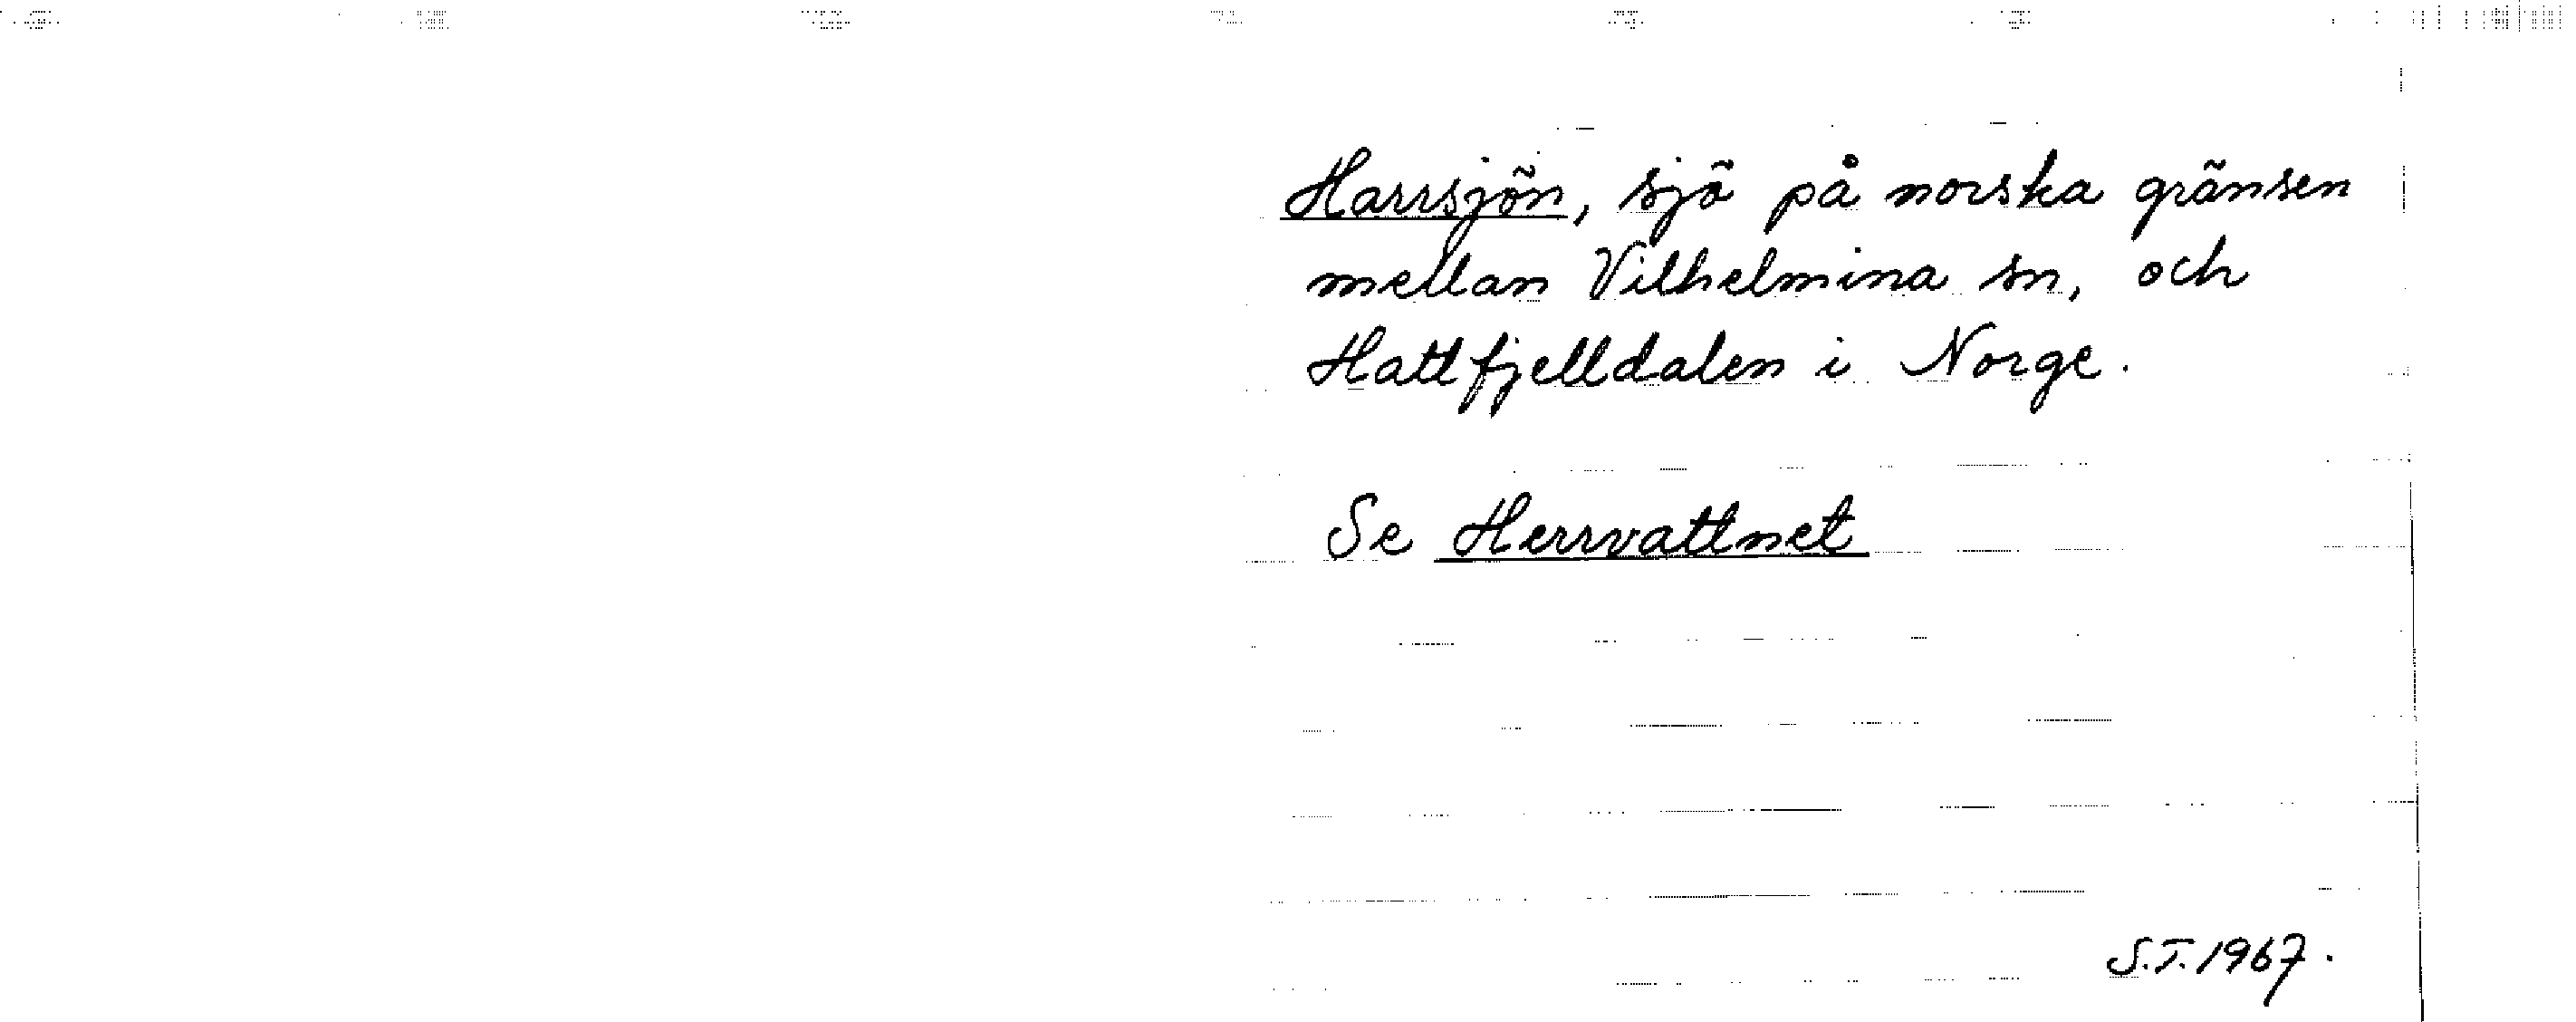 Harrsjön, sjö på norska gränsen
mellan Vilhelmina sn, och
Hattfjelldalen i Norge.
Se Herrvattnet
S.T. 1967.